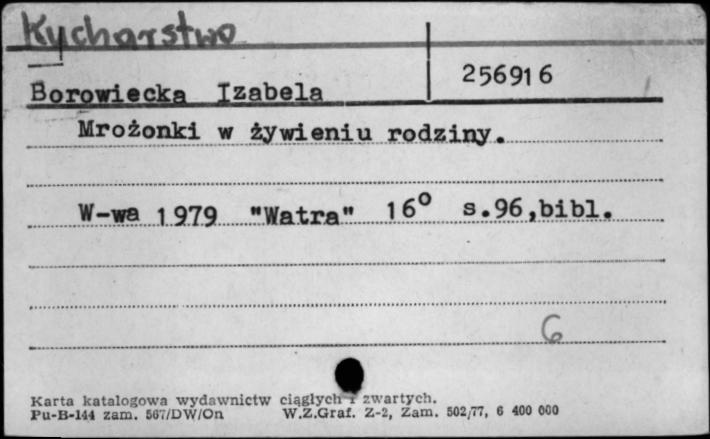 Kucharstwo
256916
Borowiecka Izabela
Mrożonki w żywieniu rodziny.
W-wa 1979 "Watra" 16° s.96,bibl.
6
Karta katalogowa wydawnictw ciągłych i zwartych.
Pu-B-144 zam. 567/DW/On W.Z.Graf. Z-2, Zam. 502/77, 6 400 000